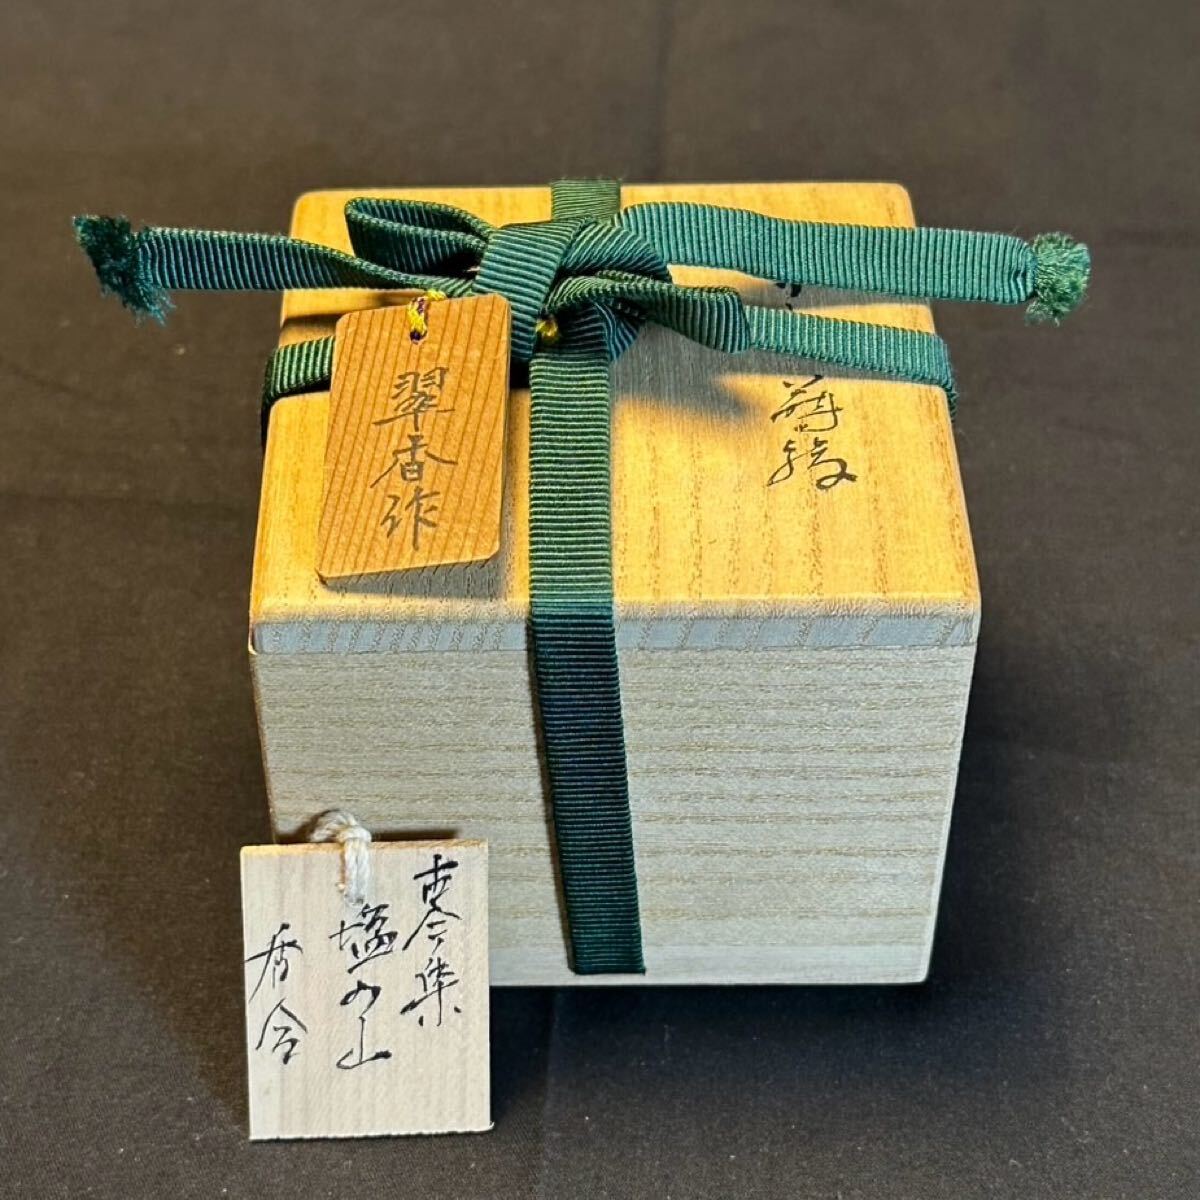 翠香作
古今集
塩の山
香合
蒔絵